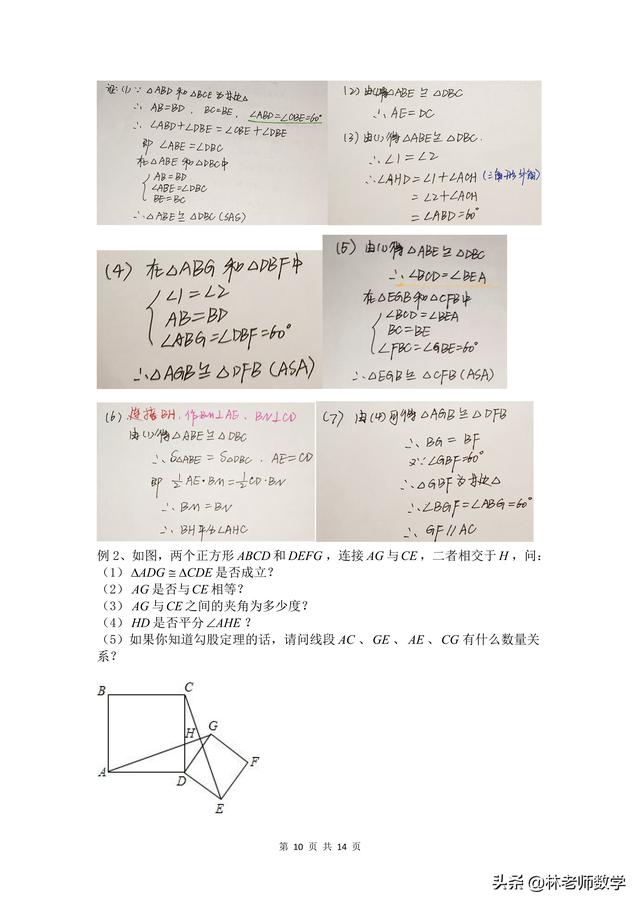 证(1) ∵ △ABD 和 △BCE 为等边△
∴ AB=BD, BC=BE, ∠ABD=∠CBE=60°
∴ ∠ABD+∠DBE=∠CBE+∠DBE
即 ∠ABE=∠DBC
在△ABE 和△DBC中
AB=BD
∠ABE=∠DBC
BE=BC
∴△ABE≌△DBC (SAS)
(2) 由(1)得△ABE≌△DBC
∴ AE=DC
(3) 由(1)得△ABE≌△DBC.
∴∠1=∠2
∴∠AHD=∠1+∠ACH (三角形外角)
=∠2+∠ACH
=∠ABD=60°
(4) 在△ABG 和△DBF中
∠1=∠2
AB=BD
∠ABG=∠DBF=60°
∴△AGB≌△DFB (ASA)
(5) 由(1)得△ABE≌△DBC
∴∠BCD=∠BEA
在△EGB和△CFB中
∠BCD=∠BEA
BC=BE
∠FBC=∠GBE=60°
∴△EGB≌△CFB (ASA)
(6) 连接BH, 作BM⊥AE、BN⊥CD
由(1)得△ABE≌△DBC
∴ S△ABE=S△DBC, AE=CD
即 ½AE·BM=½CD·BN
∴ BM=BN
∴ BH平分∠AHC
(7) 由(4)可得△AGB≌△DFB
∴ BG=BF
又∵∠GBF=60°
∴△GBF为等边△
∴∠BGF=∠ABG=60°
∴ GF∥AC
例 2、如图，两个正方形 ABCD 和 DEFG，连接 AG 与 CE，二者相交于 H，问：
（1）ΔADG≅ΔCDE 是否成立？
（2）AG 是否与 CE 相等？
（3）AG 与 CE 之间的夹角为多少度？
（4）HD 是否平分∠AHE？
（5）如果你知道勾股定理的话，请问线段 AC、GE、AE、CG 有什么数量关
系？
B C
G
H
F
A D
E
第 10 页 共 14 页
头条 @林老师数学